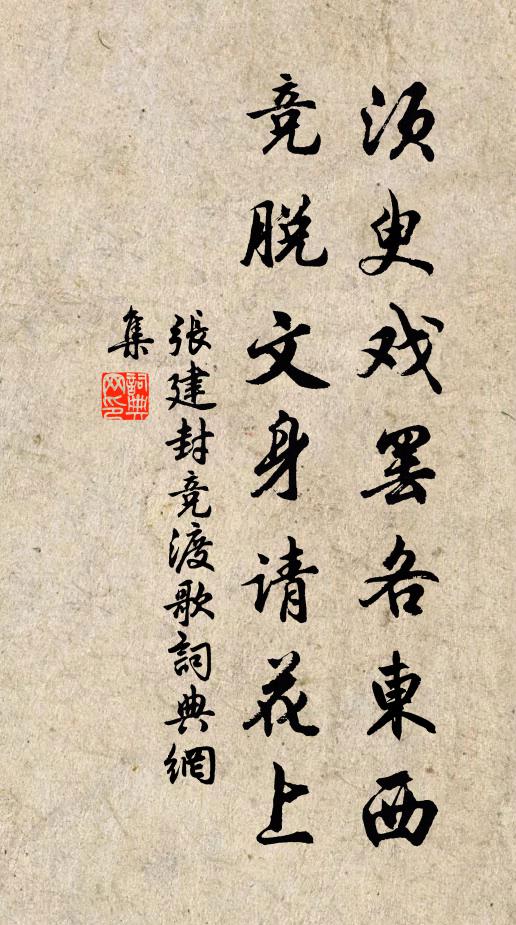 须叟戏罢各東西
竞脱文身请花上
張建封竞渡歌詞典網
集
詞典
网印